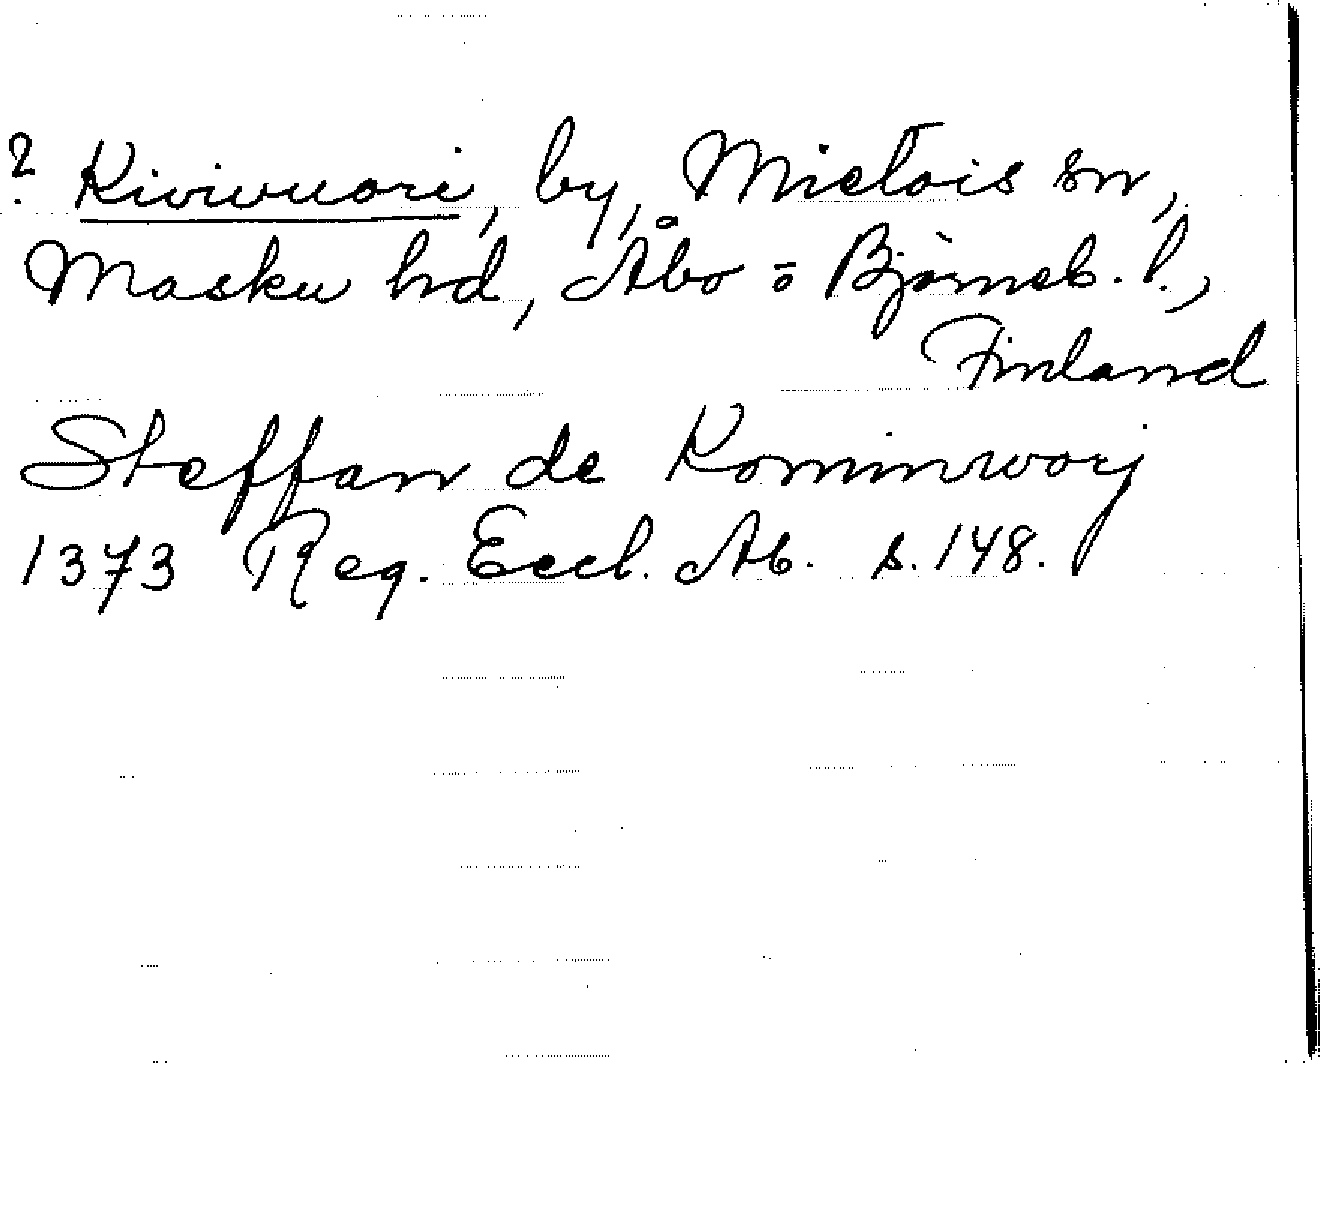 ? Kiviwuori, by, Mietois sn,
Masku hd, Åbo o Björneb. l.,
Finland
Steffan de Kominworj
1373 Reg. Eccl. Ab. s. 148.